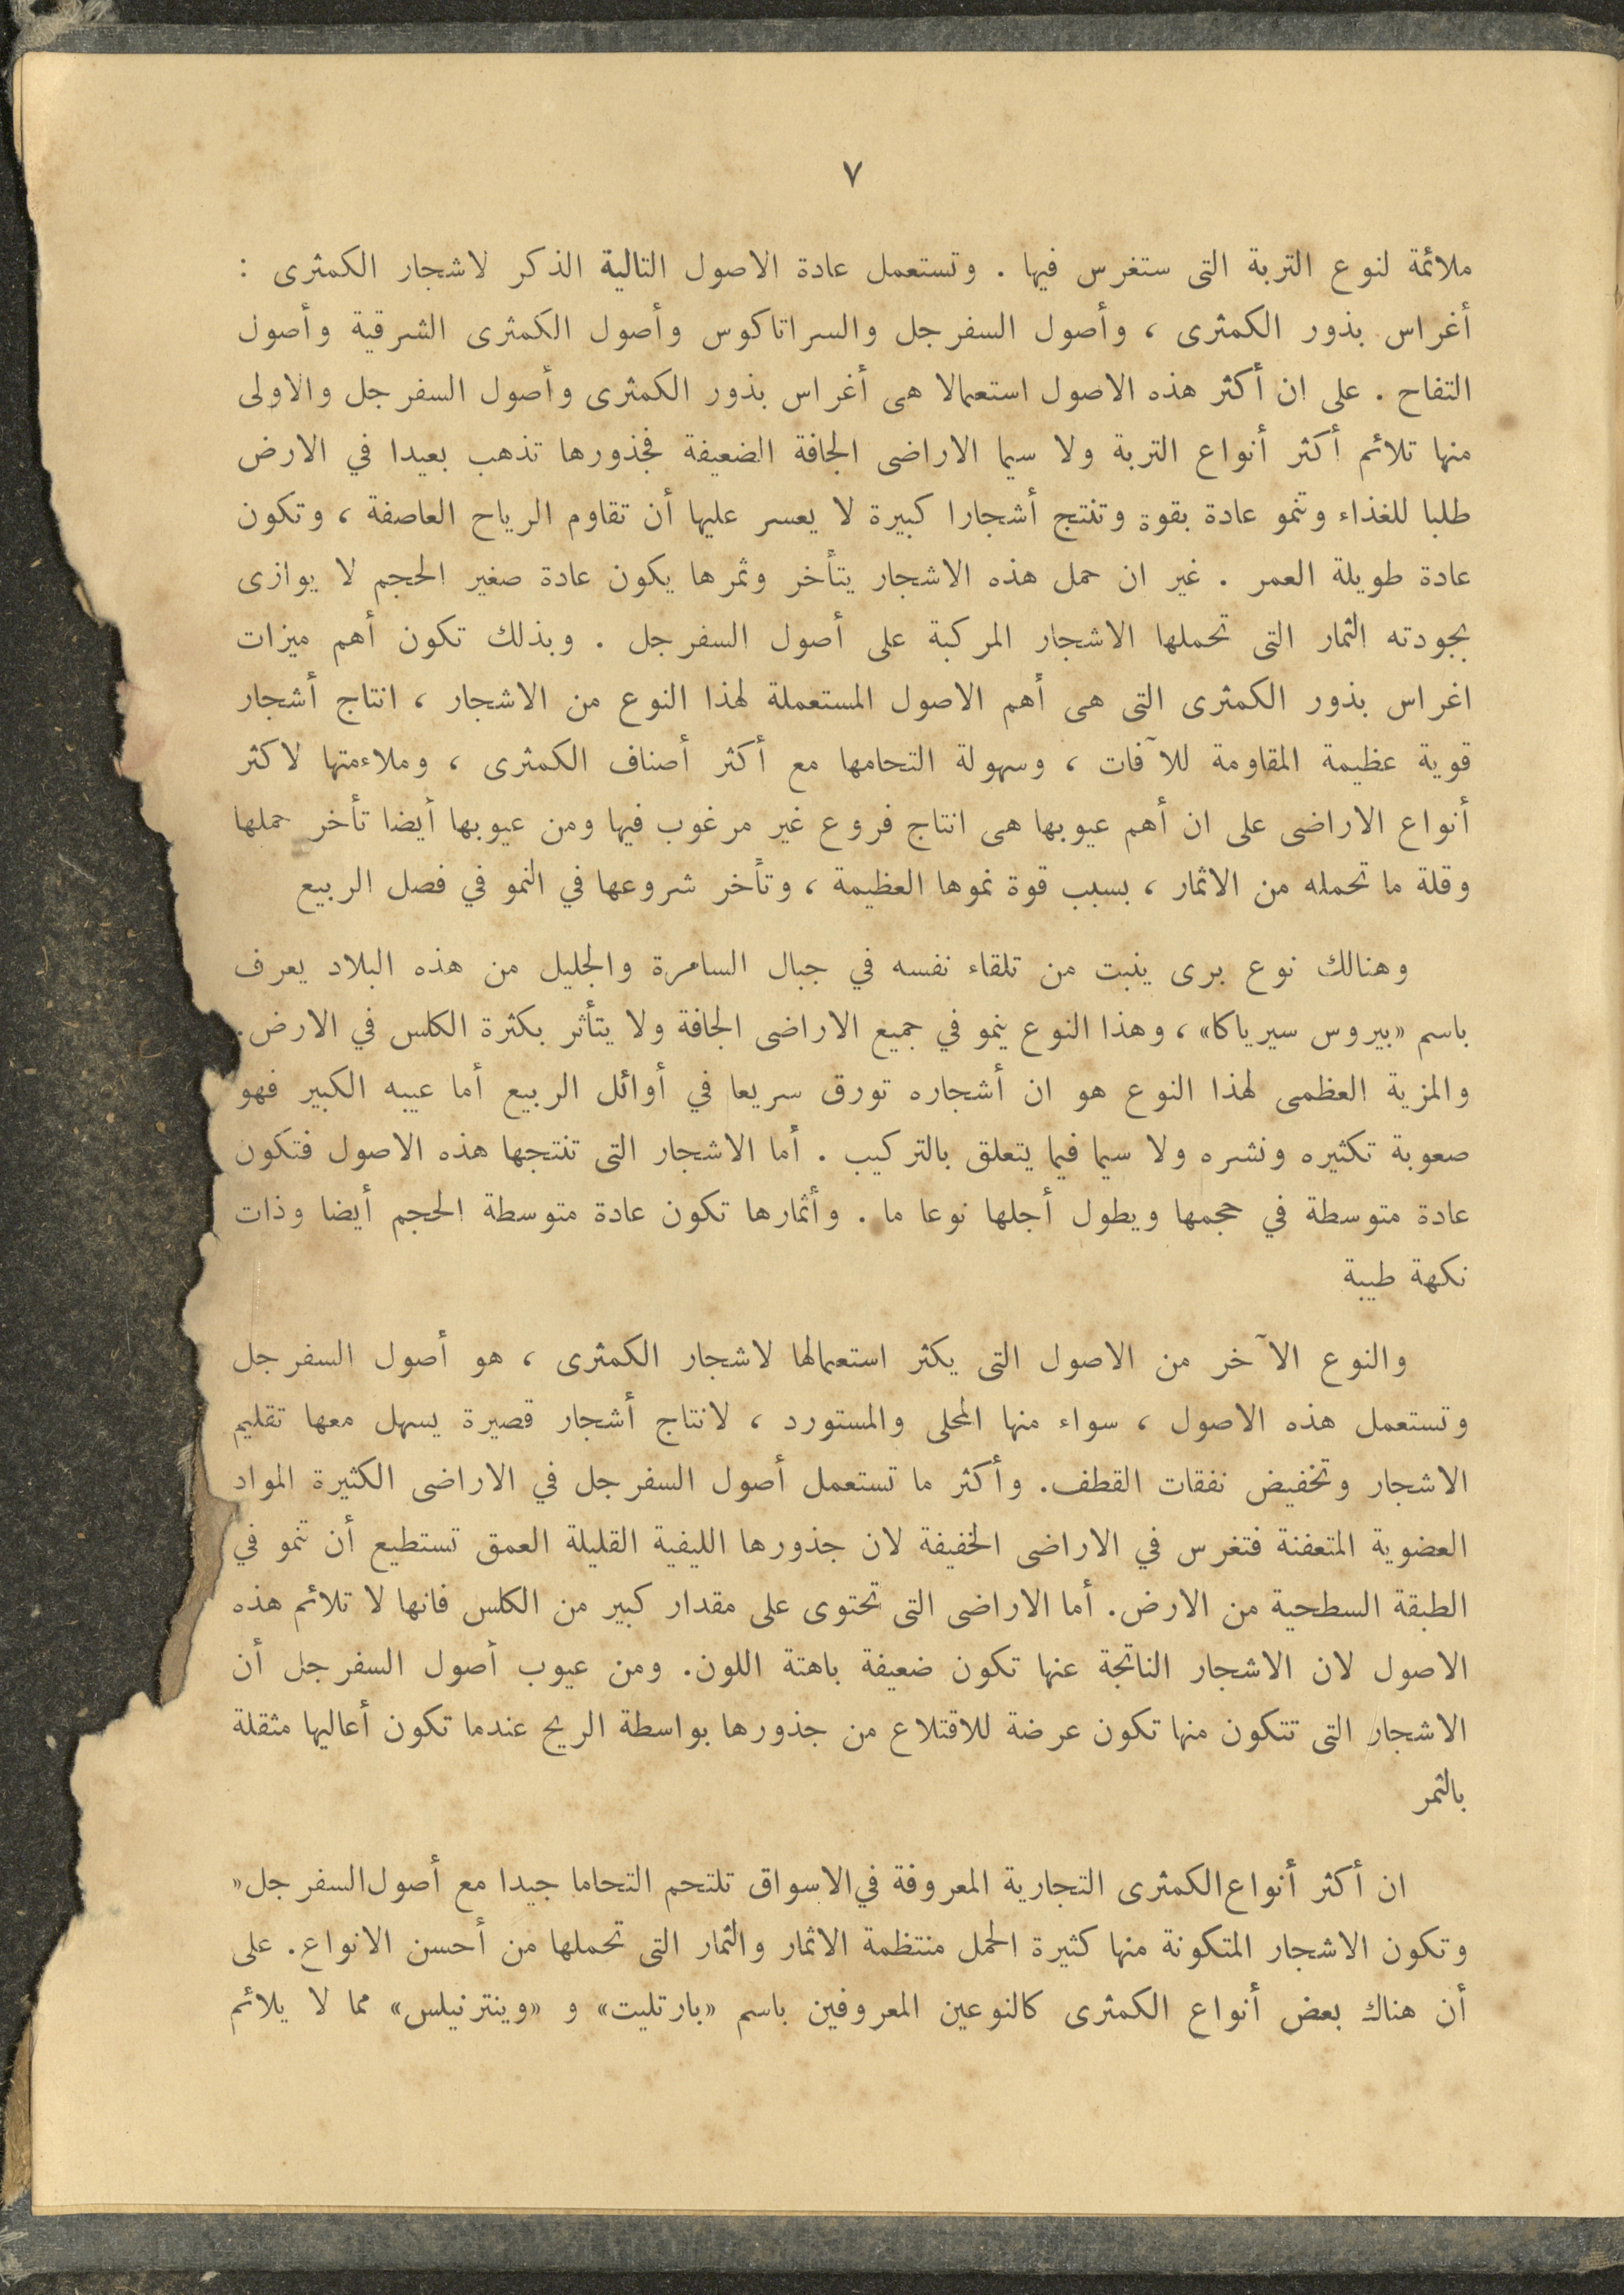 ٧
ملائمة لنوع التربة التى ستغرس فيها . وتستعمل عادة الاصول التالية الذكر لاشجار الكمثرى :
أغراس بذور الكمثرى ، وأصول السفرجل والسراتاكوس وأصول الكمثرى الشرقية وأصول
التفاح . على ان أكثر هذه الاصول استعمالا هى أغراس بذور الكمثرى وأصول السفرجل والاولى
منها تلائم أكثر أنواع التربة ولا سيما الاراضى الجافة الضعيفة فجذورها تذهب بعيدا في الارض
طلبا للغذاء وتنمو عادة بقوة وتنتج أشجارا كبيرة لا يعسر عليها أن تقاوم الرياح العاصفة ، وتكون
عادة طويلة العمر . غير ان حمل هذه الاشجار يتأخر وثمرها يكون عادة صغير الحجم لا يوازى
بجودته الثمار التى تحملها الاشجار المركبة على أصول السفرجل . وبذلك تكون أهم ميزات
اغراس بذور الكمثرى التى هى أهم الاصول المستعملة لهذا النوع من الاشجار ، انتاج أشجار
قوية عظيمة المقاومة للآفات ، وسهولة التحامها مع أكثر أصناف الكمثرى ، وملاءمتها لاكثر
أنواع الاراضى على ان أهم عيوبها هى انتاج فروع غير مرغوب فيها ومن عيوبها أيضا تأخر حملها
وقلة ما تحمله من الاثمار ، بسبب قوة نموها العظيمة ، وتأخر شروعها في النمو في فصل الربيع
وهنالك نوع برى ينبت من تلقاء نفسه في جبال السامرة والجليل من هذه البلاد يعرف
باسم «بيروس سيرياكا» ، وهذا النوع ينمو في جميع الاراضى الجافة ولا يتأثر بكثرة الكلس في الارض.
والمزية العظمى لهذا النوع هو ان أشجاره تورق سريعا في أوائل الربيع أما عيبه الكبير فهو
صعوبة تكثيره ونشره ولا سيما فيما يتعلق بالتركيب . أما الاشجار التى تنتجها هذه الاصول فتكون
عادة متوسطة في حجمها ويطول أجلها نوعا ما . وأثمارها تكون عادة متوسطة الحجم أيضا وذات
نكهة طيبة
والنوع الآخر من الاصول التى يكثر استعمالها لاشجار الكمثرى ، هو أصول السفرجل
وتستعمل هذه الاصول ، سواء منها المحلى والمستورد ، لانتاج أشجار قصيرة يسهل معها تقليم
الاشجار وتخفيض نفقات القطف. وأكثر ما تستعمل أصول السفرجل في الاراضى الكثيرة المواد
العضوية المتعفنة فتغرس في الاراضى الخفيفة لان جذورها الليفية القليلة العمق تستطيع أن تنمو في
الطبقة السطحية من الارض. أما الاراضى التى تحتوى على مقدار كبير من الكلس فانها لا تلائم هذه
الاصول لان الاشجار الناتجة عنها تكون ضعيفة باهتة اللون. ومن عيوب أصول السفرجل أن
الاشجار التى تتكون منها تكون عرضة للاقتلاع من جذورها بواسطة الريح عندما تكون أعاليها مثقلة
بالثمر
ان أكثر أنواع الكمثرى التجارية المعروفة في الاسواق تلتحم التحاما جيدا مع أصول السفرجل«
وتكون الاشجار المتكونة منها كثيرة الحمل منتظمة الاثمار والثمار التى تحملها من أحسن الانواع. على
أن هناك بعض أنواع الكمثرى كالنوعين المعروفين باسم «بارتليت» و «وينترنيلس» مما لا يلائم